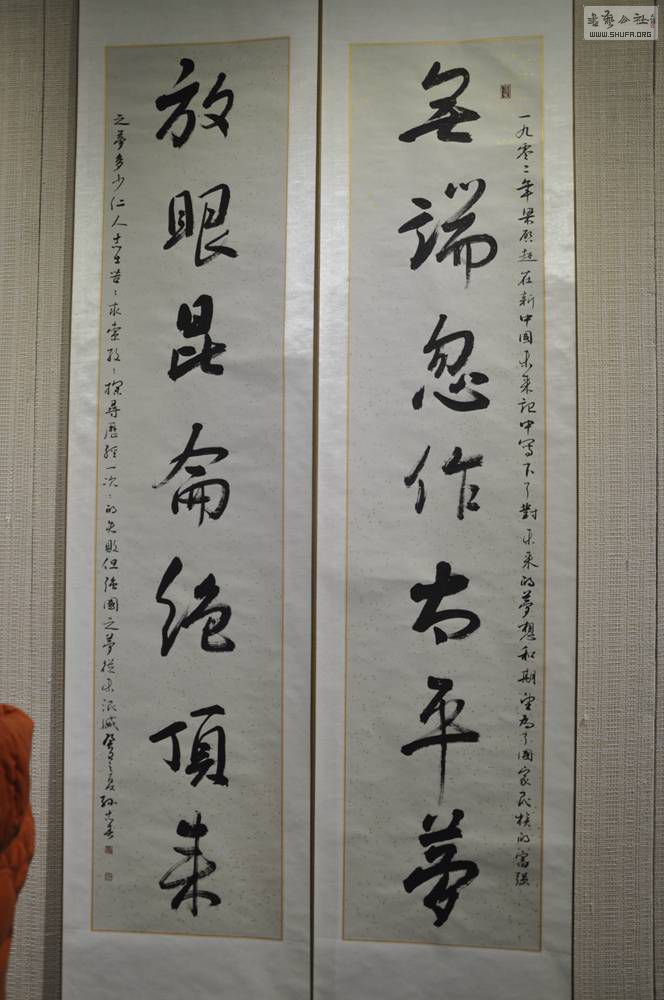 一九零二年梁啟超在新中國未來記中寫下了對未來的夢想和期望為了國家民族的富強
無端忽作太平夢
放眼昆侖絕頂來
之夢多少仁人志士苦〻求索孜〻探尋歷經一次〻的失敗但強國之夢從未泯滅癸巳之夏孫
书艺公社
WWW.SHUFA.ORG